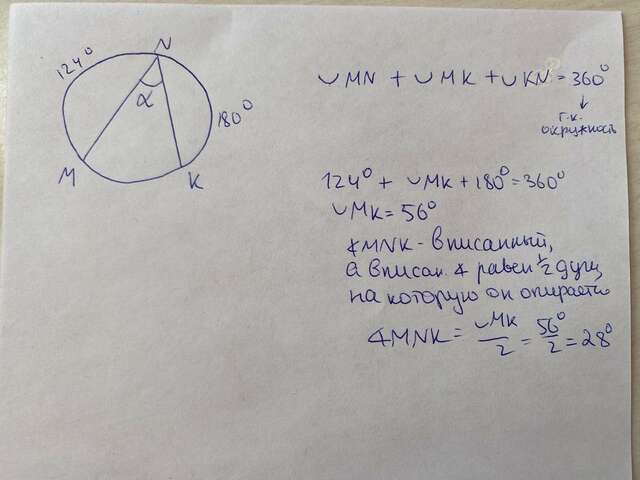 N
124°
α
180°
M
K
◡MN + ◡MK + ◡KN = 360°
↓
т.к.
окружность
124° + ◡MK + 180° = 360°
◡MK = 56°
∢MNK - вписанный,
а вписан. ∢ равен 1/2 дуги,
на которую он опирается
∢MNK = ◡MK/2 = 56°/2 = 28°